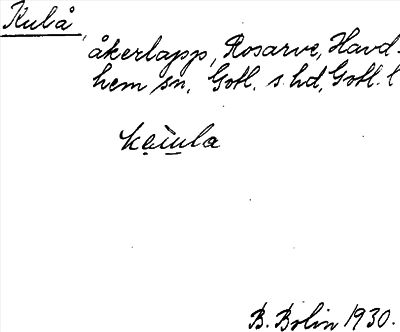 Kulå,
åkerlapp, Rosarve, Havd-
hem sn, Gotl. s. hd, Gotl. l
B. Bolin 1930.